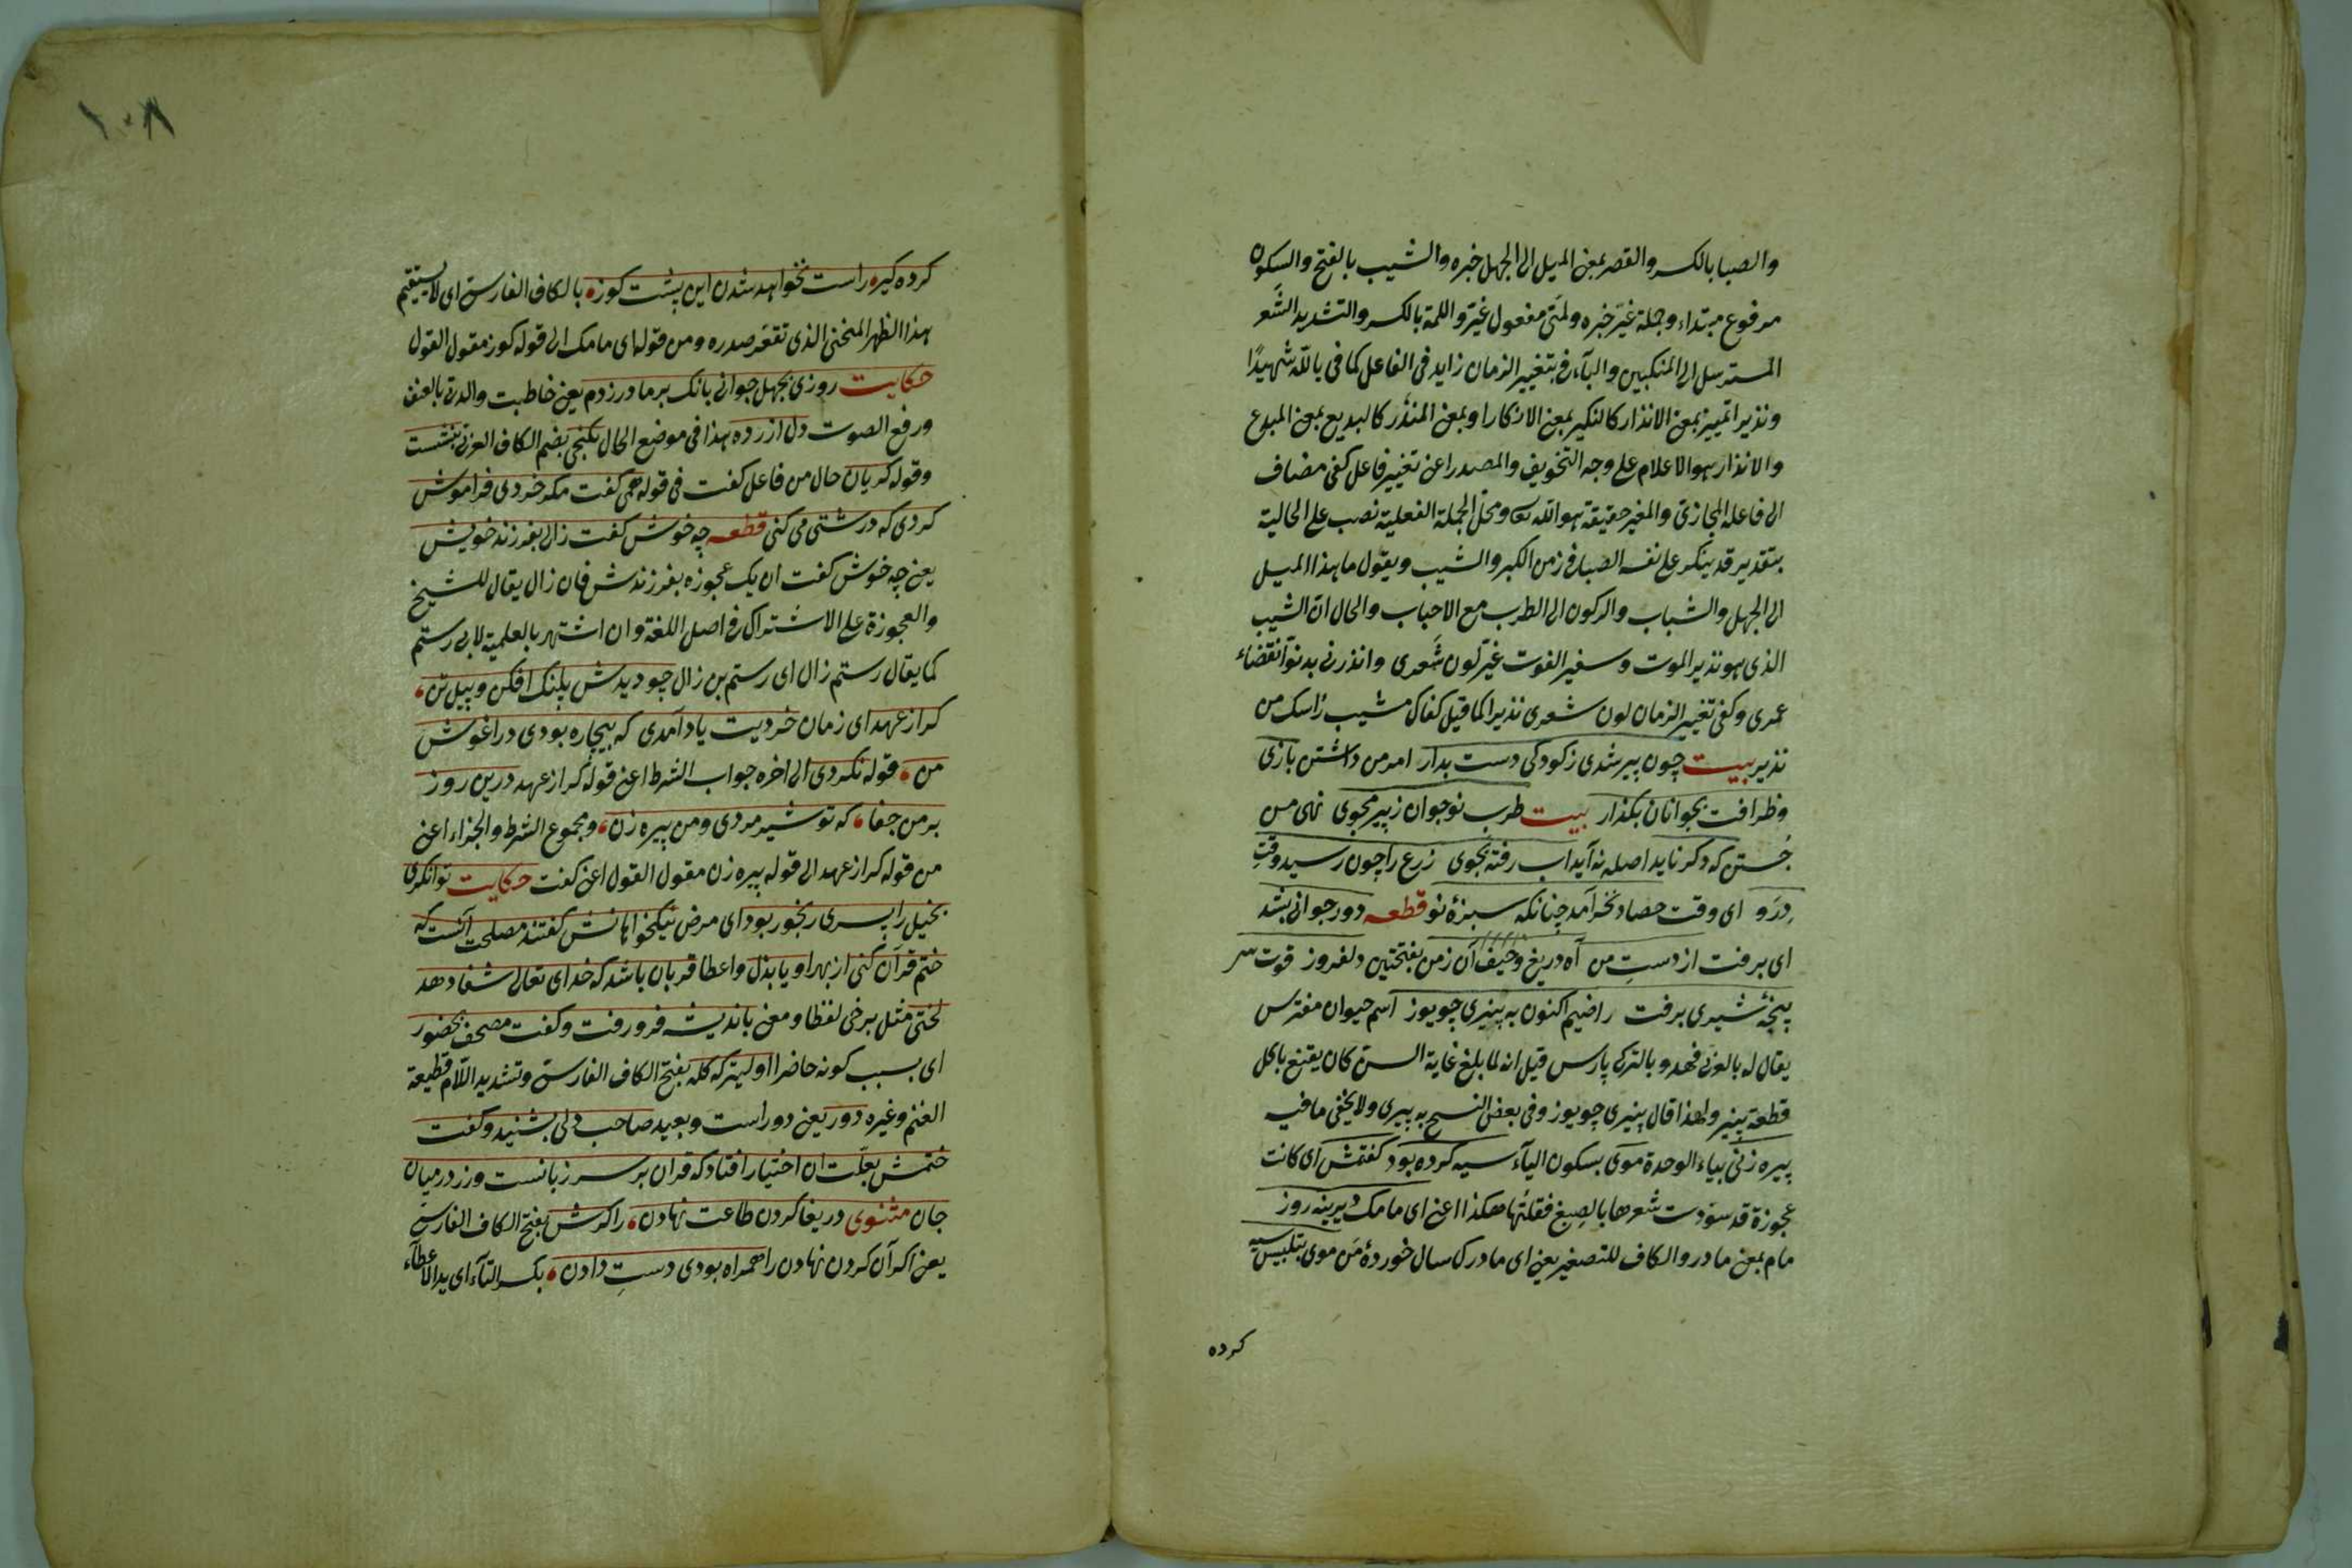 والصبا بالكسر والقصر بمعنى الميل الى الجهل خبره والشيب بالفتح والسكون
مرفوع مبتداء وجملة غيّر خبره ولمّتى مفعول غيّر واللمة بالكسر والتشديد الشَعر
المسترسل الى المنكبين والبآء فى بتغيير الزمان زايد فى الفاعل كما فى بالله شهيدًا
ونذيرا تمييز بمعنى الانذار كالنكير بمعنى الانكار او بمعنى المنذر كالبديع بمعنى المبدع
والانذار هو الاعلام على وجه التخويف والمصدر اعنى تغيير فاعل كفى مضاف
الى فاعله المجازى والمغير حقيقة هو الله تعالى ومحل الجملة الفعلية نصب على الحالية
بتقدير قد ينكر على نفسه الصبا فى زمن الكبر والشيب ويقول ما هذا الميل
الى الجهل والشباب والركون الى الطرب مع الاحباب والحال ان الشيب
الذى هو نذير الموت وسفير الفوت غيّر لون شَعرى وانذرنى بدنوّ انقضاء
عمرى وكفى تغيير الزمان لون شعرى نذيرا كما قيل كفاك مشيب راسك من
نذير بيت چون پير شدى زكودكى دست بدار امر من داشتن بازى
وظرافت بجوانان بكذار بيت طرب نوجوان زپير مجوى نهى من
جُستن كه دكر نايد اصله نه آيد اب رفته بجوى زرع را چون رسيد وقتِ
دِرَو اى وقت حصاد نخرآمد چنانكه سبزهٔ نو قطعه دور جوانى بشد
اى برفت از دستِ من آه دريغ وحيف آن زمن بفتحتين دلفروز قوت سر
پنجهٔ شيرى برفت راضيم اكنون به پنيرى چو يوز اسم حيوان مفترس
يقال له بالعربى فهد وبالتركى پارس قيل انه لما بلغ غاية السن كان يقنع باكل
قطعة پنير ولهذا قال پنيرى چو يوز وفى بعض النسح به پيرى ولا يخفى ما فيه
پيره زنى بياء الوحدة موى بسكون اليآء سيه كرده بود كفتمش اى كانت
عجوزة قد سوّدت شعرها بالصبغ فقلتُ لها هكذا اعنى اى مامك ديرينه روز
مام بمعنى مادر والكاف للتصغير يعنى اى مادرك سال خوردهٔ من موى بتلبيس سيه
كرده
١٠٨
كرده كير راست نخواهد شدن اين پشت كوز بالكاف الفارسى اى لا يستقيم
هذا الظهر المنحنى الذى تقعّر صدره ومن قوله اى مامك الى قوله كوز مقول القول
حكايت روزى بجهل جوانى بانك بر مادر زدم يعنى خاطبت والدتى بالعنف
ورفع الصوت دل ازرده هذا فى موضع الحال بكنجى بضم الكاف العربى بنشست
وقوله كريان حال من فاعل كفت فى قوله همى كفت مكر خردى فراموش
كردى كه درشتى مى كنى قطعه چه خوش كفت زالى بفرزند خويش
يعنى چه خوش كفت ان يك عجوزه بفرزندش فان زال يقال للشيخ
والعجوزة على الاشتراك فى اصل اللغة وان اشتهر بالعلمية لابى رستم
كما يقال رستم زال اى رستم بن زال چو ديدش پلنك افكن وپيل تن
كر از عهد اى زمان خرديت ياد آمدى كه بيچاره بودى در اغوش
من قوله نكردى الى اخره جواب الشرط اعنى قوله كر از عهد درين روز
بر من جفا كه تو شير مردى ومن پيره زن ومجموع الشرط والجزاء اعنى
من قوله كر از عهد الى قوله پيره زن مقول القول اعنى كفت حكايت توانكرى
بخيل را پسرى رنجور بود اى مرض نيكخواهانش كفتند مصلحت آنست كه
ختم قرآن كنى از بهر او يا بذل واعطا قربان باشد كه خداى تعالى شفا دهد
لختى مثل برخى لفظا ومعنى بانديشه فرو رفت وكفت مصحف بحضور
اى بسبب كونه حاضرا اوليتر كه كله بفتح الكاف الفارسى وتشديد اللام قطيعة
الغنم وغيره دور يعنى دور است وبعيد صاحب دلى بشنيد وكفت
ختمش بعلّت ان اختيار افتاد كه قران بر سر زبانست وزر درميان
جان مثنوى دريغا كردن طاعت نهادن را كرش بفتح الكاف الفارسى
يعنى اكر آن كردن نهادن را همراه بودى دستِ دادن بكسر التآء اى يد الاعطآء